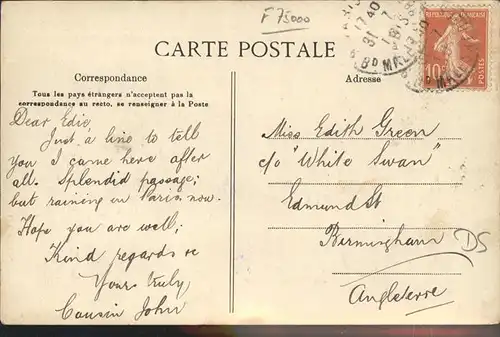 F 75000
CARTE POSTALE
Correspondance
Tous les pays étrangers n'acceptent pas la
correspondance au recto, se renseigner à la Poste
Dear Edie,
Just a line to tell
you I came here after
all. Splendid passage;
but raining in Paris now.
Hope you are well;
Kind regards
Yours truly,
Cousin John
Adresse
Miss Edith Green
c/o "White Swan"
Edmund St
Birmingham
Angleterre
DS
REPUBLIQUE FRANÇAISE
10c
POSTES
17 40
31